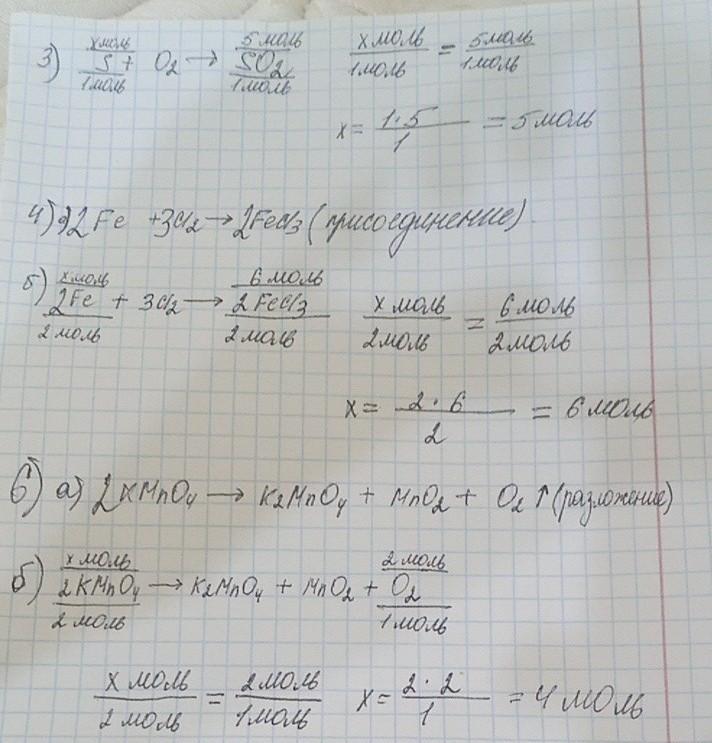 3) x моль / S / 1 моль + O₂ → 5 моль / SO₂ / 1 моль    x моль / 1 моль = 5 моль / 1 моль
x = 1·5 / 1 = 5 моль
4) а) 2Fe + 3Cl₂ → 2FeCl₃ (присоединение)
б) x моль / 2Fe / 2 моль + 3Cl₂ → 6 моль / 2FeCl₃ / 2 моль    x моль / 2 моль = 6 моль / 2 моль
x = 2·6 / 2 = 6 моль
6) а) 2KMnO₄ → K₂MnO₄ + MnO₂ + O₂↑ (разложение)
б) x моль / 2KMnO₄ / 2 моль → K₂MnO₄ + MnO₂ + 2 моль / O₂ / 1 моль
x моль / 2 моль = 2 моль / 1 моль    x = 2·2 / 1 = 4 моль